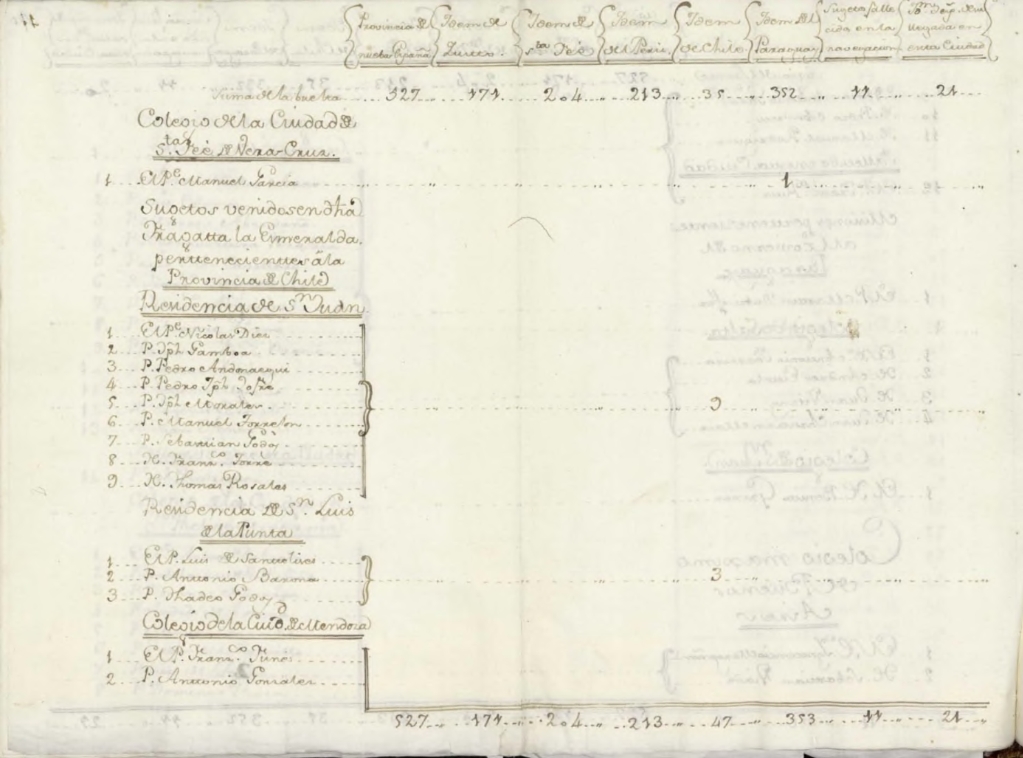 Provincia de nueva España
Idem de Quito
Idem de Sta. Feé
Idem del Perú
Idem de Chile
Idem del Paraguay
Sugetos fallecidos en la navegacion
en esta Ciudad
Suma de la buelta 527 171 204 213 35 352 11 21
Colegio de la Ciudad de
Sta. Feé de Vera-Cruz.
1 El Pe. Manuel Garcia 1
Sugetos venidos en dha
Fragatta la Esmeralda,
pertenecientes á la
Provincia de Chile
Residencia de Sn. Juan
1 El Pe. Nicolas Diaz
2 P. Jph. Gamboa
3 P. Pedro Andonaegui
4 P. Pedro Jph. Jofre
5 P. Jph. Morales 9
6 P. Manuel Torrejon
7 P. Sebastian Godoy
8 H. Franco. Torre
9 H. Thomas Rosales
Residencia de Sn. Luis
de la Punta
1 El P. Luis de Santelises
2 P. Antonio Barona 3
3 P. Thadeo Godoy
Colegio de la Ciud. de Mendoza
1 El P. Franco.
2 P. Antonio Gonzales
527 171 204 213 47 353 11 21